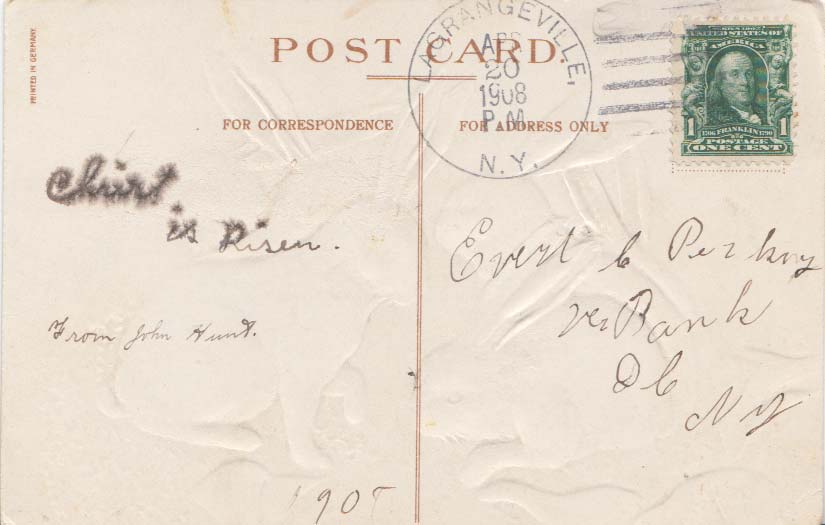 PRINTED IN GERMANY
POST CARD.
LAGRANGEVILLE,
APR
20
1908
P.M.
N.Y.
UNITED STATES OF
AMERICA
1 1706 FRANKLIN 1790 1
POSTAGE
ONE CENT
FOR CORRESPONDENCE
FOR ADDRESS ONLY
Christ
is Risen.
From John Hunt.
Evert
Bank
N Y
190